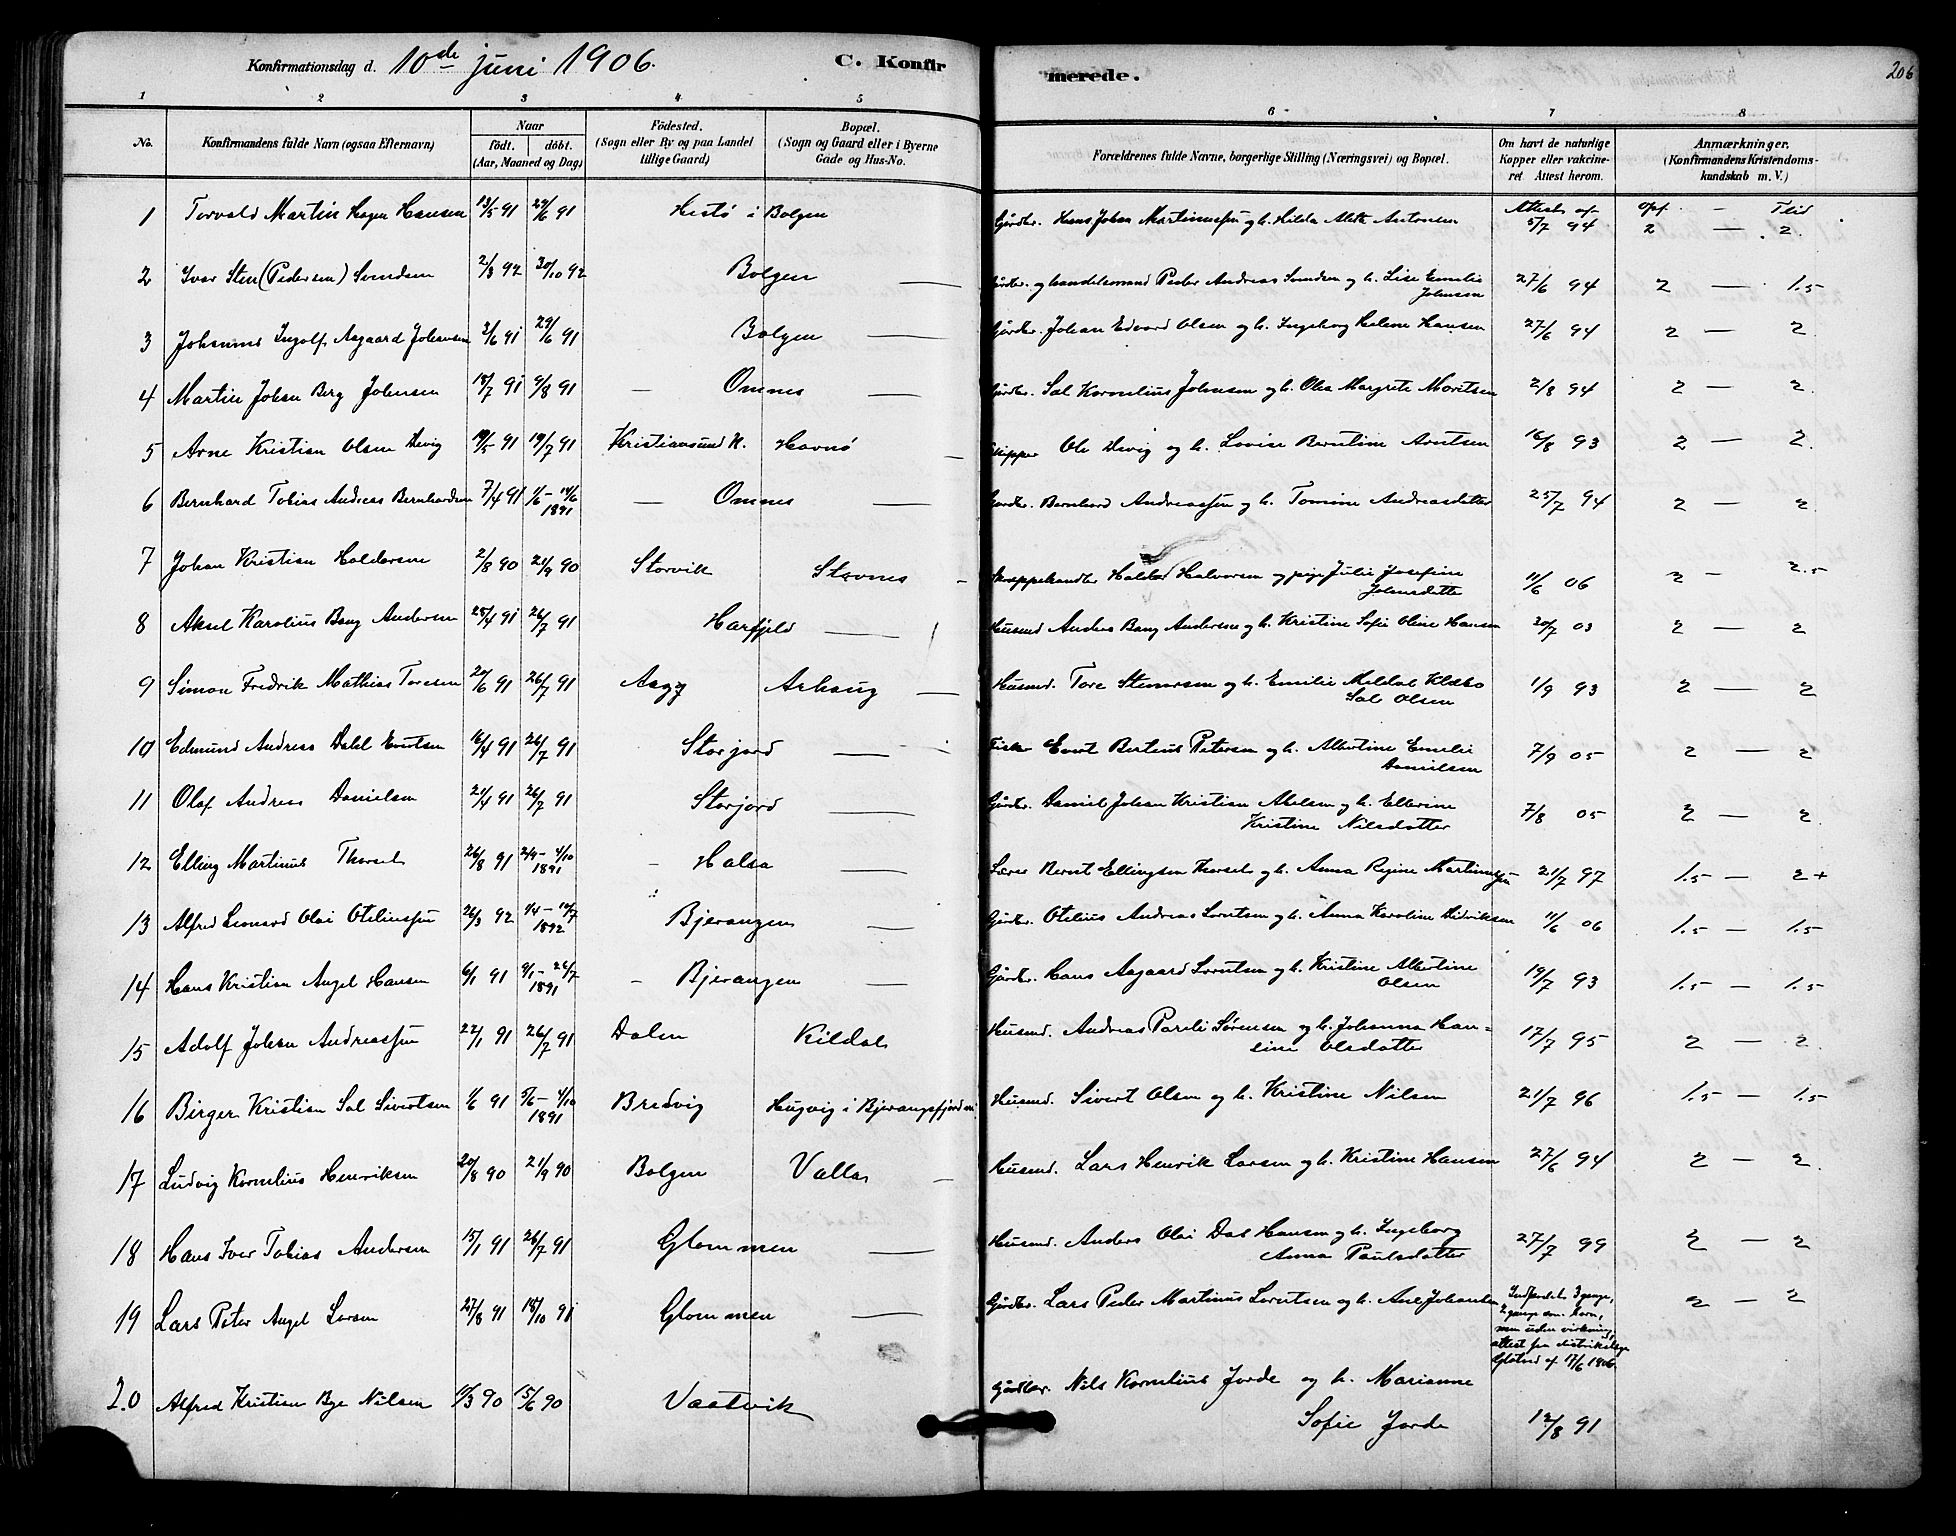 Konfirmationsdag d. 10de juni 1906. C. Konfirmerede. 206
1 2 3 4 5 6 7 8
No. Konfirmandens fulde Navn (ogsaa Efternavn) Naar födt. döbt. (Aar, Maaned og Dag) Födested. (Sogn eller By og paa Landet tillige Gaard) Bopæl. (Sogn og Gaard eller i Byerne Gade og Hus-No. Forældrenes fulde Navne, borgerlige Stilling (Næringsvei) og Bopæl. Om havt de naturlige Kopper eller vakcineret Attest herom. Anmærkninger. (Konfirmandens Kristendomskundskab m. V.)
1 Torvald Martin Hagen Hansen 13/5 91 29/6 91 Hestö i Bolgen Gårdbr. Hans Johan Martinussen og h. Hilda Aleth Antonsen Attest af 5/7 94 Opf. — Flid 2 — 2.
2 Ivar Sten (Pedersen) Svendsen 2/8 92 30/10 92 Bolgen — Gårdbr. og handelsmand Peder Andreas Svendsen og h. Lise Emelie Johnsen 27/6 94 2 — 1.5
3 Johannes Ingolf Aagaard Johansen 3/6 91 29/6 91 Bolgen — Gårdbr. Johan Edvard Olsen og h. Ingeborg Helene Hansen 27/6 94 2 — 2.
4 Martin Johan Berg Johnsen 18/7 91 9/8 91 — Omnes — Gårdbr. Sal Kornelius Johnsen og h. Olea Margrete Moritsen 2/8 94 2 — 2.
5 Arne Kristian Olsen Devig 19/5 91 19/7 91 Kristiansund N. Havnö — Skipper Ole Devig og h. Lovise Berntine Arntsen 16/8 93 2 — 2.
6 Bernhard Tobias Andreas Bernhardsen 7/4 91 1/6 – 14/6 1891 — Omnes — Gårdbr. Bernhard Andreassen og h. Tomine Andreasdatter 25/7 94 2 — 2.
7 Johan Kristian Haldorsen 2/8 90 21/9 90 Storvik Stavnes — Skrappehandler Haldor Halvorsen og pige Julie Josefine Johnsdatter 11/6 06 2 — 2.5
8 Aksel Karolius Bang Andersen 25/4 91 26/7 91 Harfjeld — Husmd Anders Bang Andersen og h. Kristine Sofie Oline Hansen 20/7 03 2 — 2
9 Simon Fredrik Mathias Toresen 20/6 91 26/7 91 Aag Arhaug — Husmd. Tore Stenersen og h. Emilie Meldal Klæbo Sal Olsen 1/9 93 2 — 2
10 Edmund Andreas Dahl Evertsen 16/4 91 26/7 91 Storjord — Fisker Evert Berteus Petersen og h. Albertine Emelie Danielsen 7/9 05 2 — 2
11 Olaf Andreas Danielsen 21/4 91 26/7 91 Storjord — Gårdbr. Daniel Johan Kristian Abelsen og h. Ellerine Kristine Nilsdatter 7/8 05 2 — 2.
12 Elling Martinus Thorsel 26/8 91 29/9 – 4/10 1891 — Halsa — Lærer Bernt Ellingsen Thorsel og h. Anna Regine Martinussen 21/7 97 1.5 — 2+
13 Alfred Leonard Olai Oteliussen 26/3 92 1/4 – 10/7 1892 Bjerangen — Gårdbr. Otelius Andreas Lorntsen og h. Anna Karoline Didriksen 11/6 06 1.5 — 1.5
14 Hans Kristian Angel Hansen 6/1 91 9/1 – 26/7 1891 — Bjerangen — Gårdbr. Hans Aagaard Lorntsen og h. Kristine Albertine Olsen 19/7 93 1.5 — 1.5
15 Adolf Johan Andreassen 22/1 91 26/7 91 Dalen Kildal Husmd. Andreas Pareli Sørensen og h. Johanna Hansine Olsdatter 17/7 95 2 — 2.
16 Birger Kristian Sal Sivertsen 1/6 91 5/6 – 4/10 1891 Bredvig Hugvig i Bjerangsfjorden Husmd. Sivert Olsen og h. Kristine Nilsen 21/7 96 1.5 — 1.5
17 Ludvig Kornelius Henriksen 20/8 90 21/9 90 Bolgen Valla — Husmd. Lars Henrik Larsen og h. Kristine Hansen 27/6 94 2 — 2.
18 Hans Iver Tobias Andersen 15/1 91 26/7 91 Glommen — Husmd. Anders Olai Dal Hansen og h. Ingeborg Anna Paulsdatter 27/7 99 2 — 2
19 Lars Peter Angel Larsen 27/8 91 18/10 91 Glommen — Gårdbr. Lars Peder Martinus Lorntsen og h. Ane Johansen Indpodet 3 gange, 2 gange som barn, men uden virkning, attest fra distriktslæge Gløtvod af 17/6 1906. 2 — 2
20 Alfred Kristian Bye Nilsen 11/3 90 15/6 90 Vaatvik Gårdbr. Nils Kornelius Jorde og h. Marianne Sofie Jorde 12/8 91